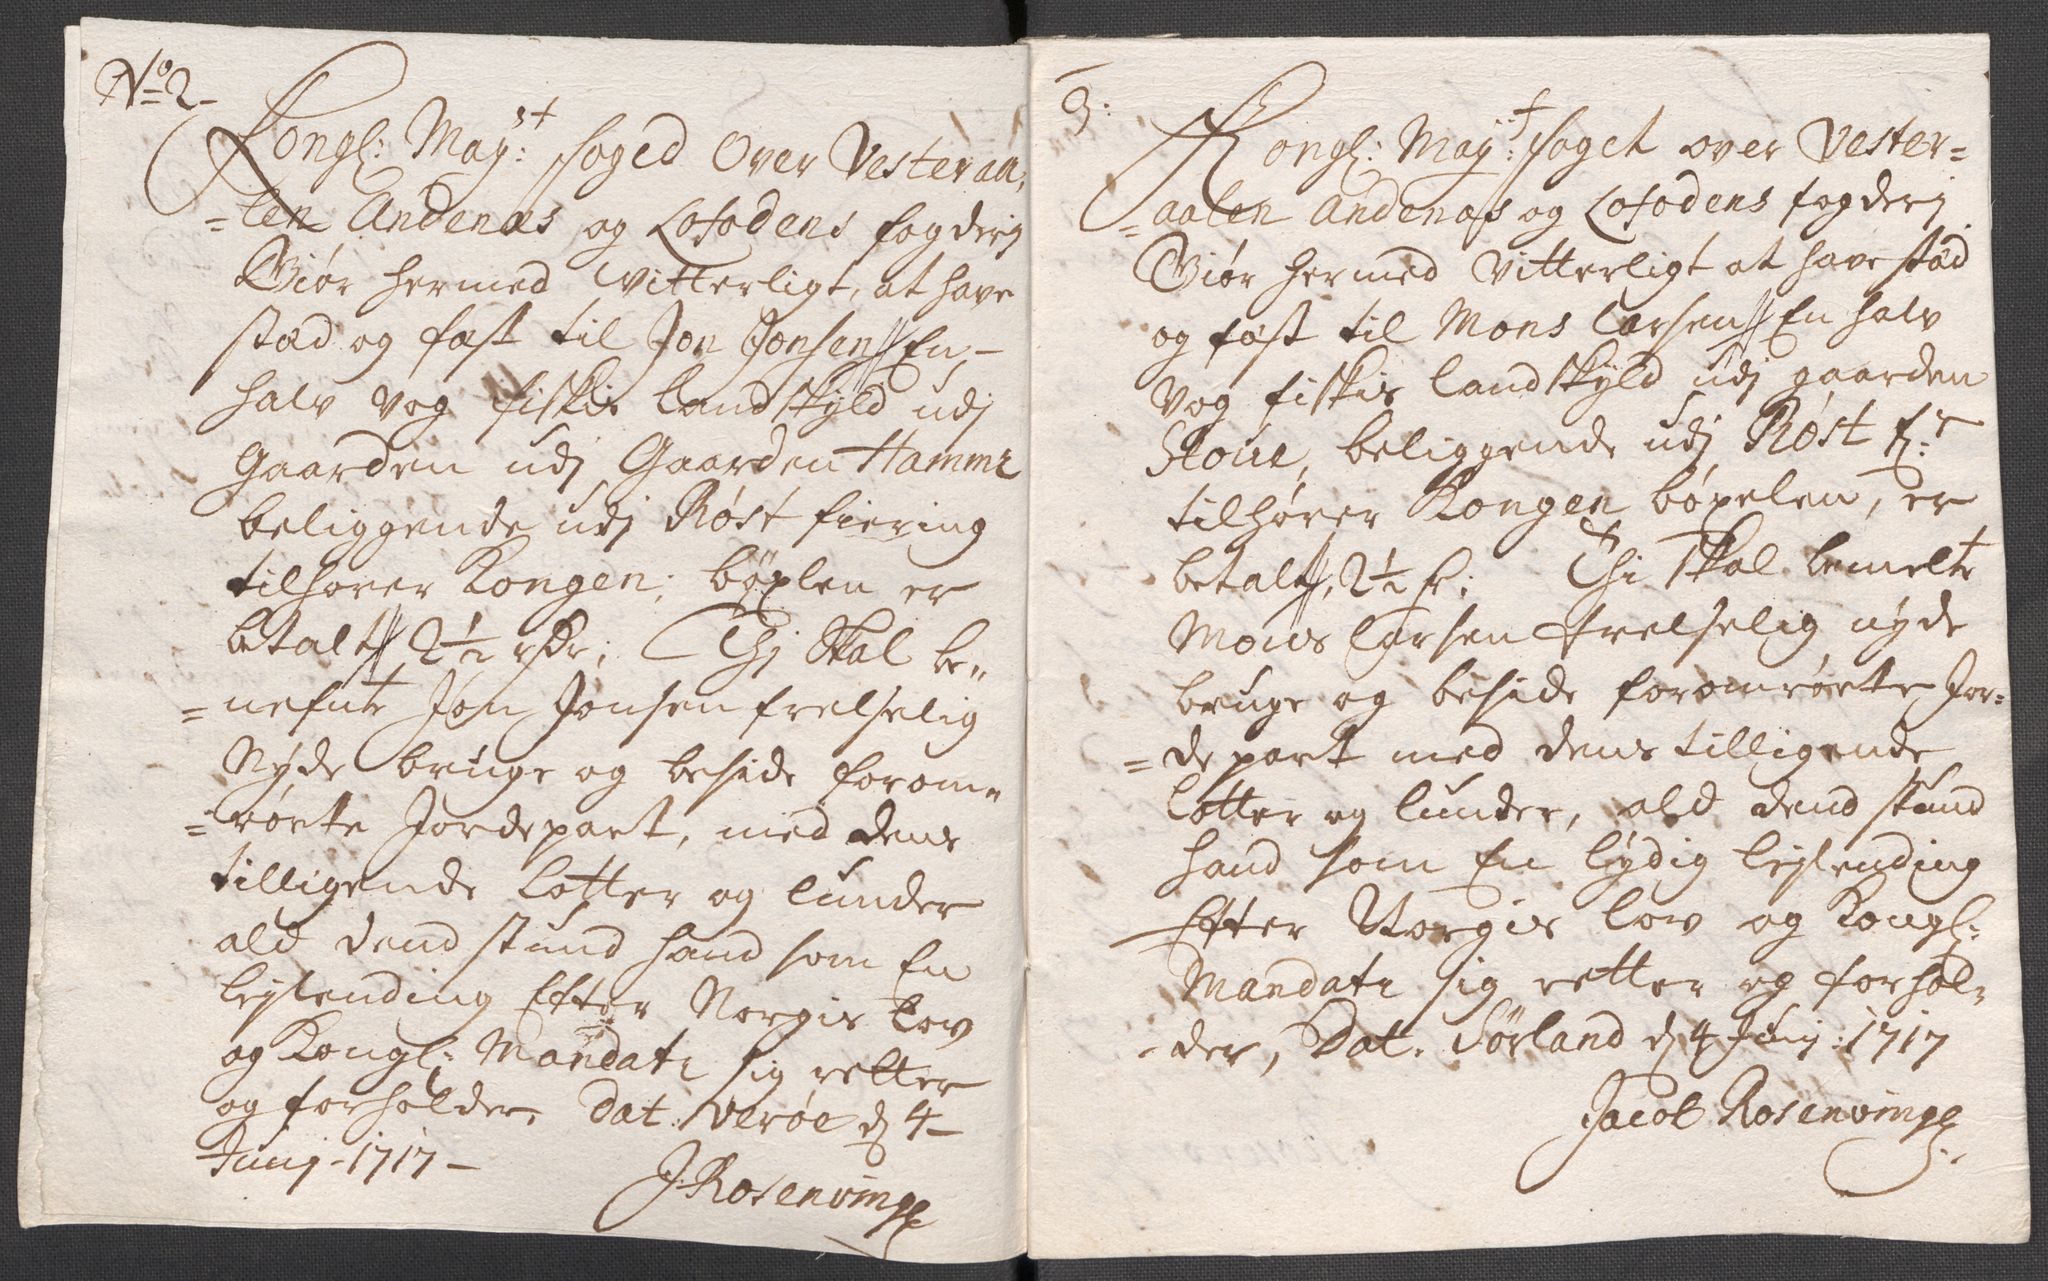 No 2
Kongl: May:st foged Over Vesteraa,
=len Andenæs og Lofodens fogderj
Giör hermed Witterligt, at have
stæd og fæst til Jon Jonsen // En,-
halv vog fiskis landskyld udj
Gaarden udj Gaarden Hamme
beliggende udj Røst fiering
tilhører Kongen; böxlen er
betalt // 2½ rdr; Thj skal be=
=nefnte Jon Jonsen frelselig
Nyde bruge og beside forom=
=rörte Jordepart, med dens
tilligende lotter og lunder
ald dend stund hand som En
leylending Efter Norgis lov
og Kongl: Mandate sig retter
og forholder, Dat. Verøe d 4-
Junij-1717-
J:Rosenvinge
3:
Kongl: May:t foget over Vester=
=aalen Andenæs og Lofodens fogderj
Giör hermed Vitterligt at have stæd
og fæst til Mons Larsen // En halv
Vog fiskis landskyld udj gaarden
beliggende udj Røst f:r
tilhører Kongen böxelen, er
betalt //, 2½ r; Thi skal bemelte
Mons Larsen frelselig nyde
bruge og beside foromrörte Jor=
=depart med dens tilligende
lotter og lunder, ald dend stund
hand som En lydig leylending
Efter Norgis lov og Kongl:
Mandate sig retter og forhol=
-der, Dat. Sörland d 4 Junj: 1717
Jacob Rosenvinge